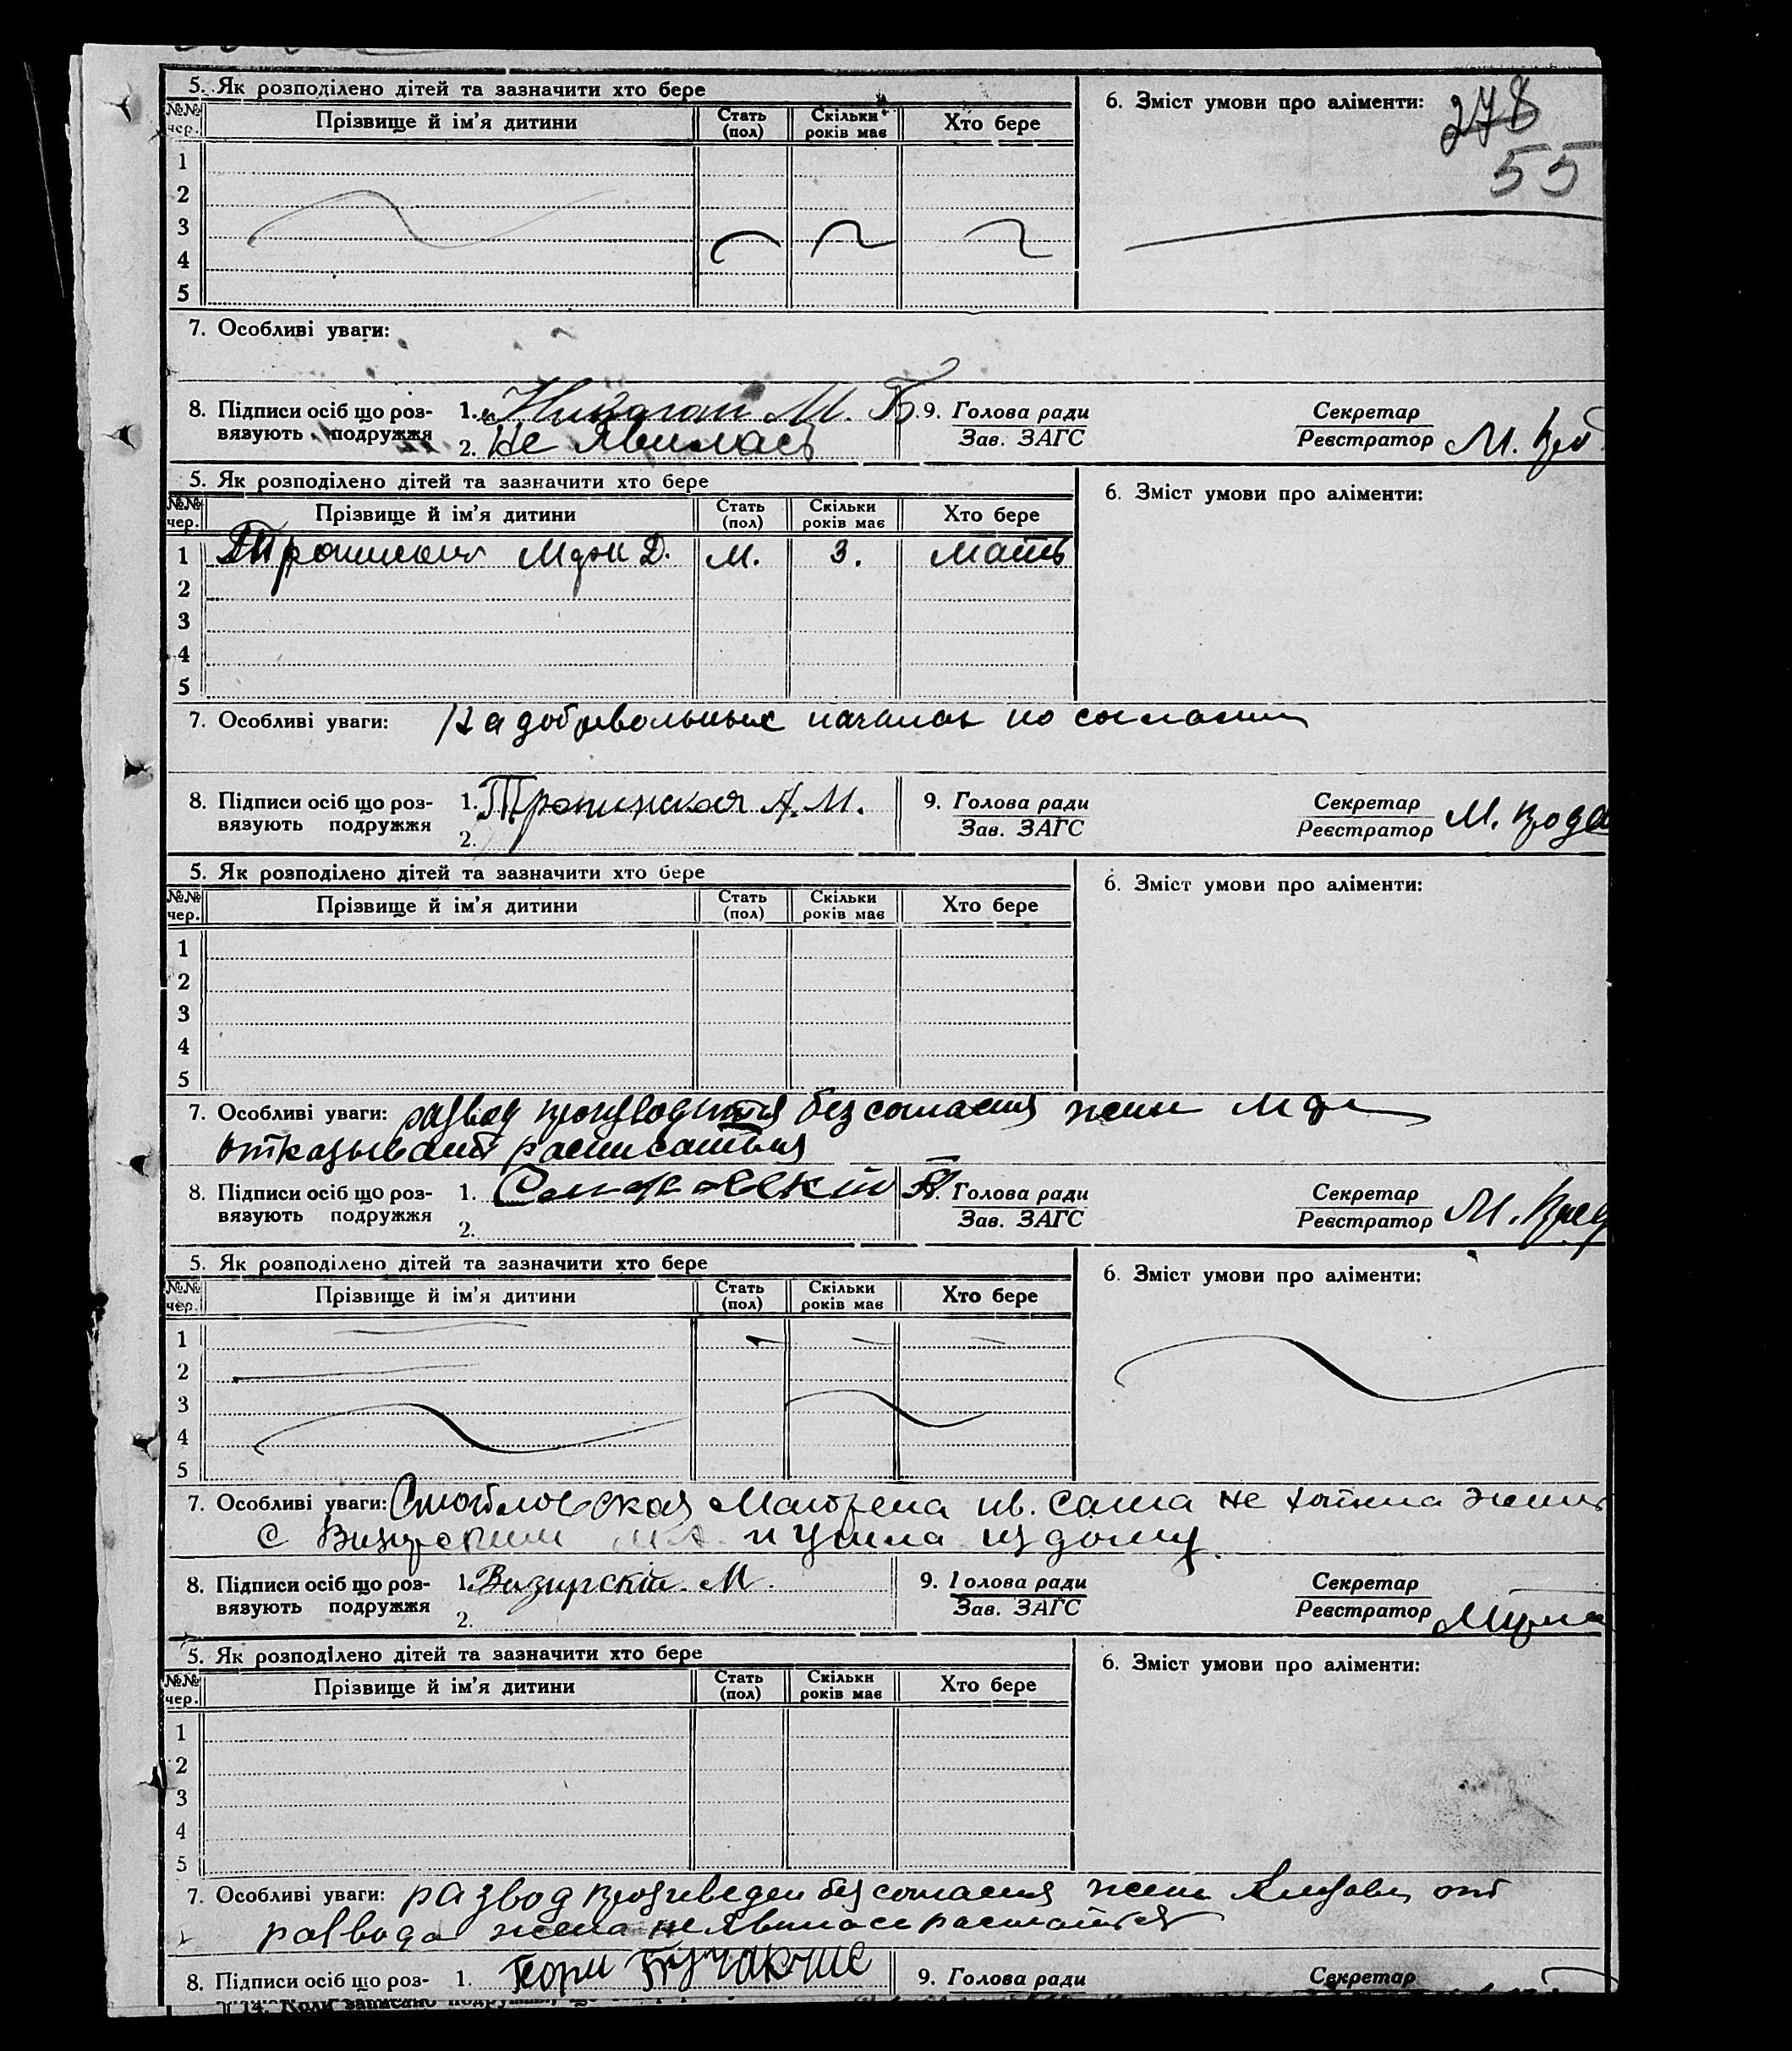 5. Як розподілено дітей та зазначити хто бере
6. Зміст умови про аліменти:
278
55
№№ чер. Прізвище й ім'я дитини Стать (пол) Скільки років має Хто бере
1
2
3
4
5
7. Особливі уваги:
8. Підписи осіб що роз-
вязують подружжя
1. М. Б.
2. Не явилась
9. Голова ради
Зав. ЗАГС
Секретар
Реєстратор М.
5. Як розподілено дітей та зазначити хто бере
6. Зміст умови про аліменти:
№№ чер. Прізвище й ім'я дитини Стать (пол) Скільки років має Хто бере
1 Д. М. 3. Мать
2
3
4
5
7. Особливі уваги: На добровольных началах по согласию
8. Підписи осіб що роз-
вязують подружжя
1. А. М.
2.
9. Голова ради
Зав. ЗАГС
Секретар
Реєстратор М.
5. Як розподілено дітей та зазначити хто бере
6. Зміст умови про аліменти:
№№ чер. Прізвище й ім'я дитини Стать (пол) Скільки років має Хто бере
1
2
3
4
5
7. Особливі уваги: развод производится без согласия жены
отказывает расписаться
8. Підписи осіб що роз-
вязують подружжя
1.
2.
9. Голова ради
Зав. ЗАГС
Секретар
Реєстратор М.
5. Як розподілено дітей та зазначити хто бере
6. Зміст умови про аліменти:
№№ чер. Прізвище й ім'я дитини Стать (пол) Скільки років має Хто бере
1
2
3
4
5
7. Особливі уваги: Матрена ив. сама не хотела жить
с Визирским и ушла из дому.
8. Підписи осіб що роз-
вязують подружжя
1. Визирскій М.
2.
9. Голова ради
Зав. ЗАГС
Секретар
Реєстратор
5. Як розподілено дітей та зазначити хто бере
6. Зміст умови про аліменти:
№№ чер. Прізвище й ім'я дитини Стать (пол) Скільки років має Хто бере
1
2
3
4
5
7. Особливі уваги: развод произведен без согласия жены от
развода жена не явилась
8. Підписи осіб що роз-
1.
9. Голова ради
Секретар
14. Коли записано